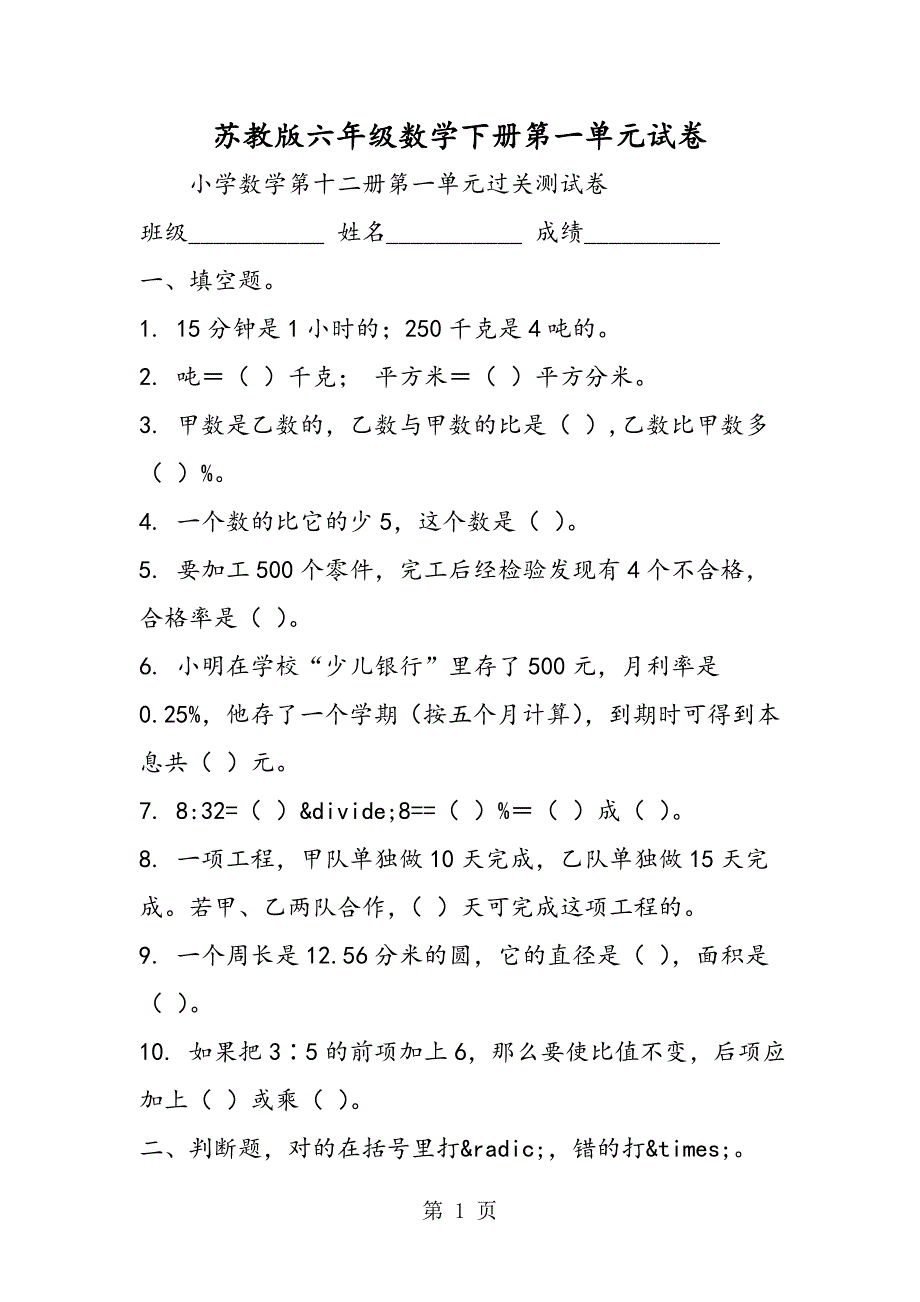 苏教版六年级数学下册第一单元试卷
小学数学第十二册第一单元过关测试卷
班级___________ 姓名___________ 成绩___________
一、填空题。
1. 15分钟是1小时的；250千克是4吨的。
2. 吨＝（ ）千克； 平方米＝（ ）平方分米。
3. 甲数是乙数的，乙数与甲数的比是（ ）,乙数比甲数多
（ ）%。
4. 一个数的比它的少5，这个数是（ ）。
5. 要加工500个零件，完工后经检验发现有4个不合格，
合格率是（ ）。
6. 小明在学校“少儿银行”里存了500元，月利率是
0.25%，他存了一个学期（按五个月计算），到期时可得到本
息共（ ）元。
7. 8:32=（ ）&divide;8==（ ）%＝（ ）成（ ）。
8. 一项工程，甲队单独做10天完成，乙队单独做15天完
成。若甲、乙两队合作，（ ）天可完成这项工程的。
9. 一个周长是12.56分米的圆，它的直径是（ ），面积是
（ ）。
10. 如果把3∶5的前项加上6，那么要使比值不变，后项应
加上（ ）或乘（ ）。
二、判断题，对的在括号里打&radic;，错的打&times;。
第 1 页